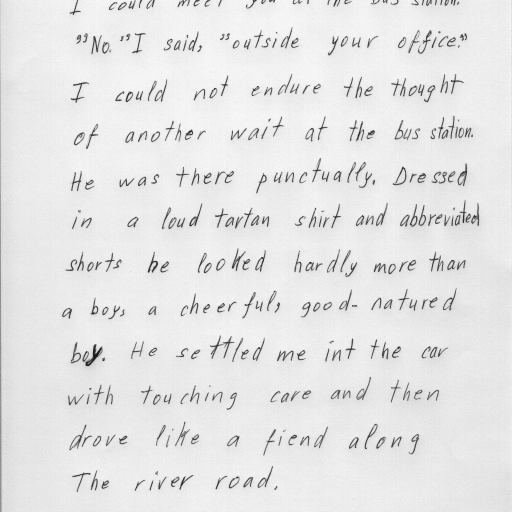 I could meet you at the bus station.
"No." "I said, "outside your office."
I could not endure the thought
of another wait at the bus station.
He was there punctually. Dressed
in a loud tartan shirt and abbreviated
shorts he looked hardly more than
a boy, a cheerful, good-natured
boy. He settled me int the car
with touching care and then
drove like a fiend along
The river road.